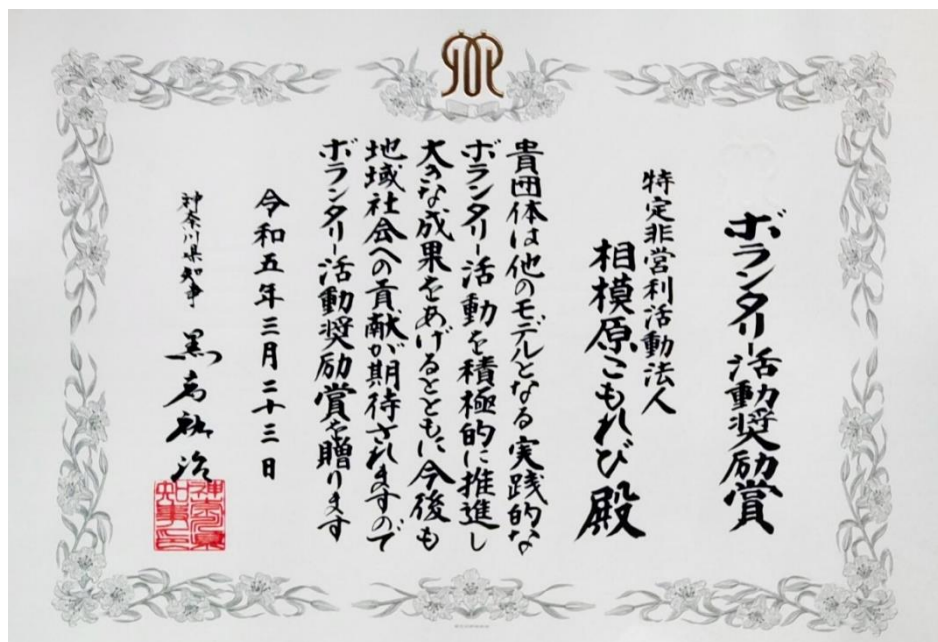 ボランタリー活動奨励賞
特定非営利活動法人
相模原こもれび殿
貴団体は他のモデルとなる実践的な
ボランタリー活動を積極的に推進し
大きな成果をあげるとともに今後も
地域社会への貢献が期待されますので
ボランタリー活動奨励賞を贈ります
令和五年三月二十三日
神奈川県知事 黒岩祐治
神奈川県知事印